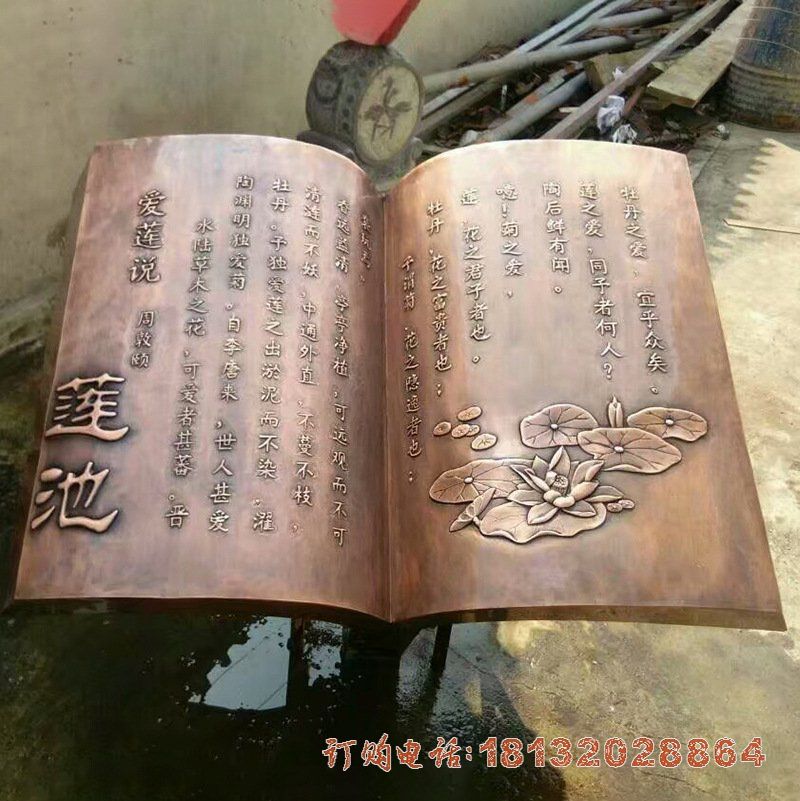 爱莲说
周敦颐
莲池
水陆草木之花,可爱者甚蕃。晋
陶渊明独爱菊。自李唐来,世人甚爱
牡丹。予独爱莲之出淤泥而不染,濯
清涟而不妖,中通外直,不蔓不枝,
香远益清,亭亭净植,可远观而不可
亵玩焉。
予谓菊,花之隐逸者也;
牡丹,花之富贵者也;
莲,花之君子者也。
噫!菊之爱,
陶后鲜有闻。
莲之爱,同予者何人?
牡丹之爱,宜乎众矣。
订购电话:18132028864